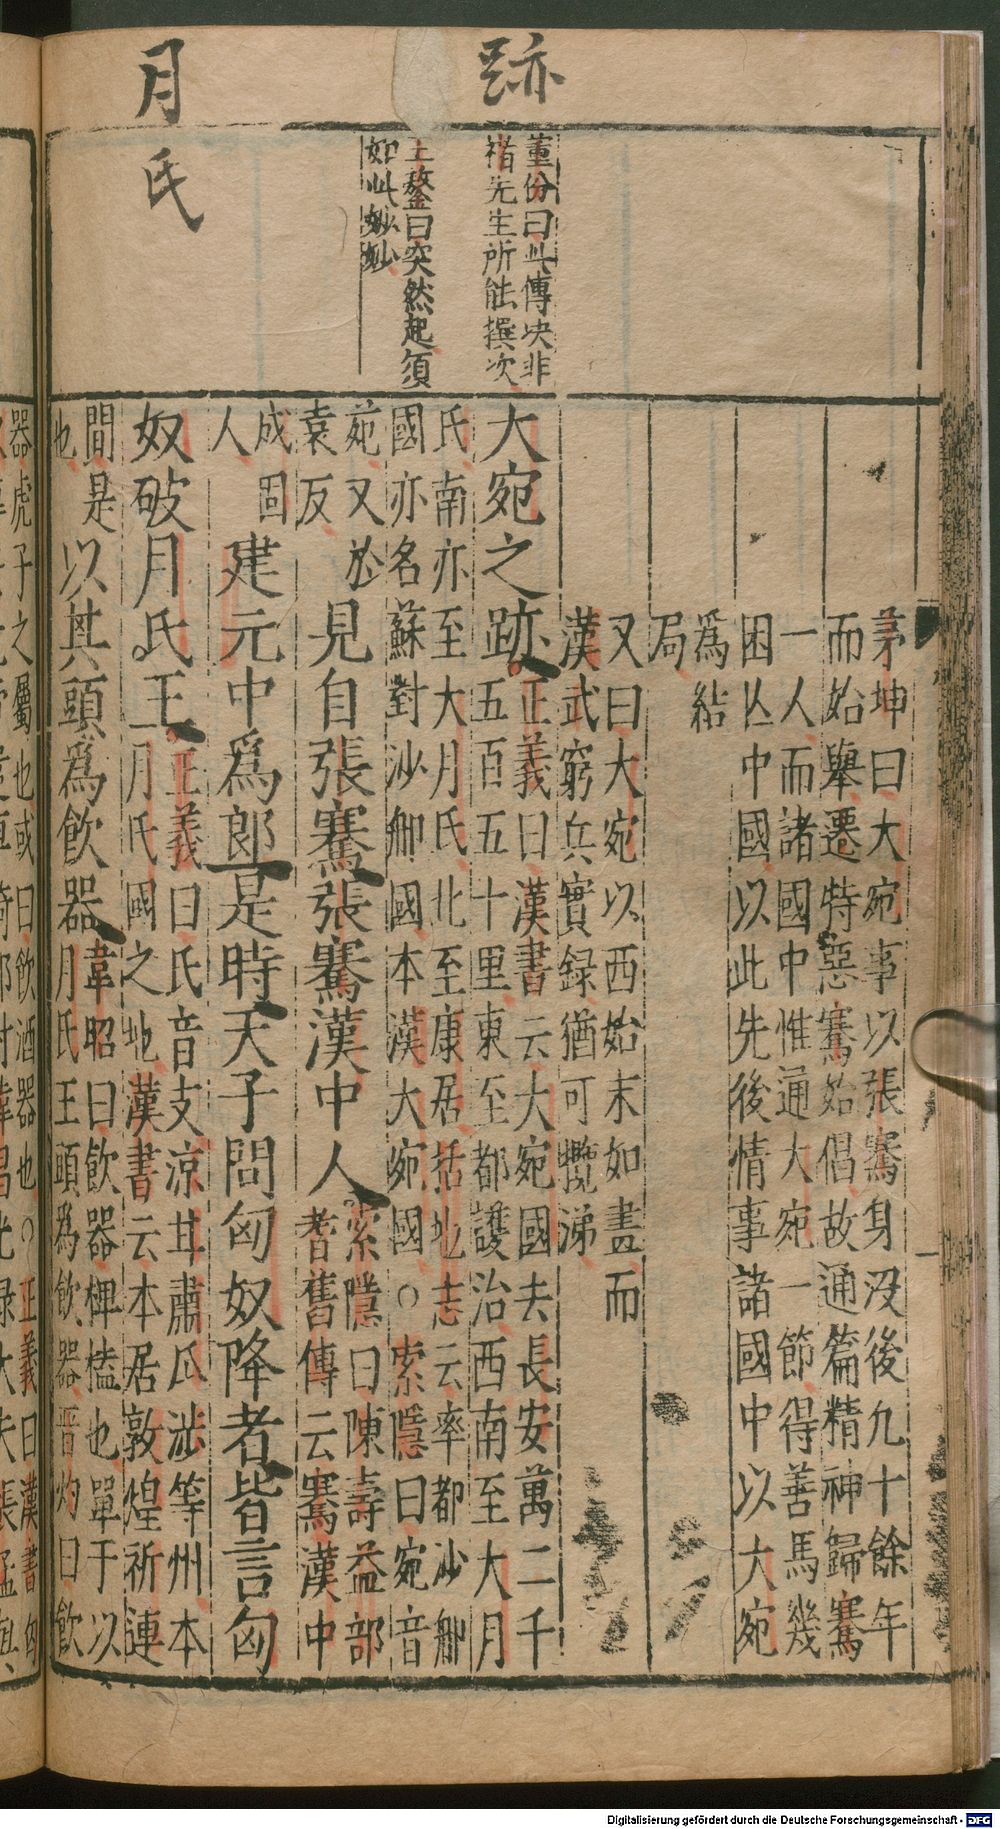 跡
月氏
董份曰此傳决非
褚先生所能撰次
王鏊曰突然起須
如此妙妙
茅坤曰大宛事以張騫身没後九十餘年
而始舉遷特惡騫始倡故通篇精神歸騫
一人而諸國中惟通大宛一節得善馬幾
困亾中國以此先後情事諸國中以大宛
爲結
局
又曰大宛以西始末如畫而
漢武窮兵實録猶可攬涕
大宛之跡
正義曰漢書云大宛國去長安萬二千
五百五十里東至都護治西南至大月
氏南亦至大月氏北至康居括地志云率都沙郍
國亦名蘇對沙郍國本漢大宛國○索隱曰宛音
菀又於
袁反
見自張騫張騫漢中人
索隱曰陳壽益部
耆舊傳云騫漢中
成固
人
建元中爲郎是時天子問匈奴降者皆言匈
奴破月氏王
正義曰氏音支凉甘肅瓜沙等州本
月氏國之地漢書云本居敦煌祈連
間是
也
以其頭爲飲器
韋昭曰飲器椑榼也單于以
月氏王頭爲飲器晋灼曰飲
器虎子之屬也或曰飲酒器也○正義曰漢書匈
Digitalisierung gefördert durch die Deutsche Forschungsgemeinschaft - DFG